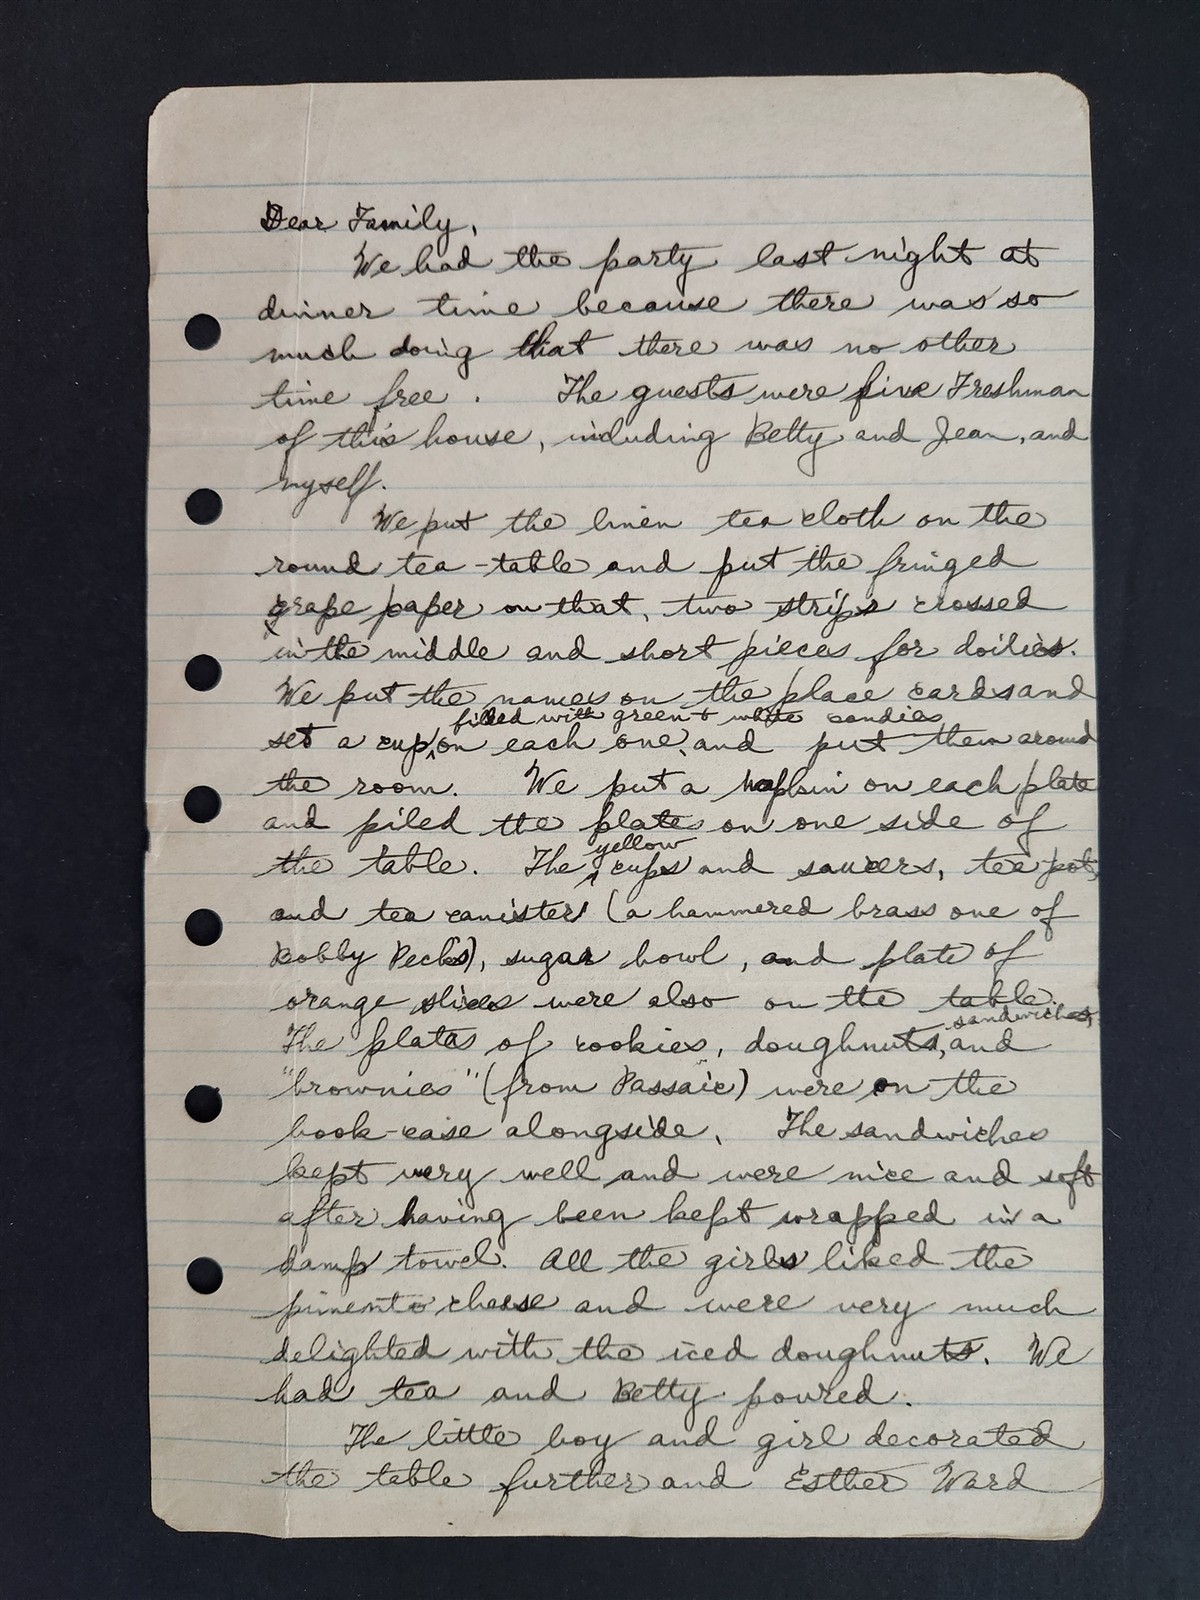 Dear Family,
We had the party last night at
dinner time because there was so
much doing that there was no other
time free. The guests were five Freshman
of this house, including Betty and Jean, and
myself.
We put the linen tea cloth on the
round tea-table and put the fringed
grape paper on that, two strips crossed
in the middle and short pieces for doilies.
We put the names on the place cards and
filled with green + white candies
set a cup, on each one, and put them around
the room. We put a napkin on each plate
and piled the plates on one side of
yellow
the table. The cups and saucers, tea pot,
and tea canister (a hammered brass one of
Bobby Peck's), sugar bowl, and plate of
orange slices were also on the table.
sandwiches,
The plates of cookies, doughnuts, and
"brownies" (from Passaic) were on the
book-case alongside. The sandwiches
kept very well and were nice and soft
after having been kept wrapped in a
damp towel. All the girls liked the
pimento cheese and were very much
delighted with the iced doughnuts. We
had tea and Betty poured.
The little boy and girl decorated
the table further and Esther Ward